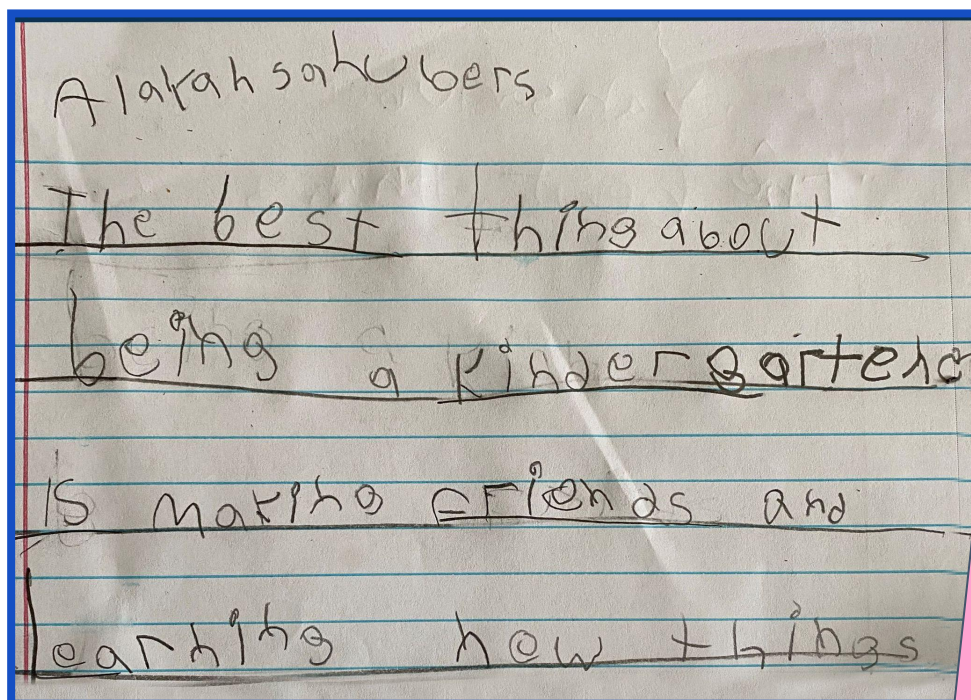 The best thing about
being a kindergartene
is making friends and
learning how things